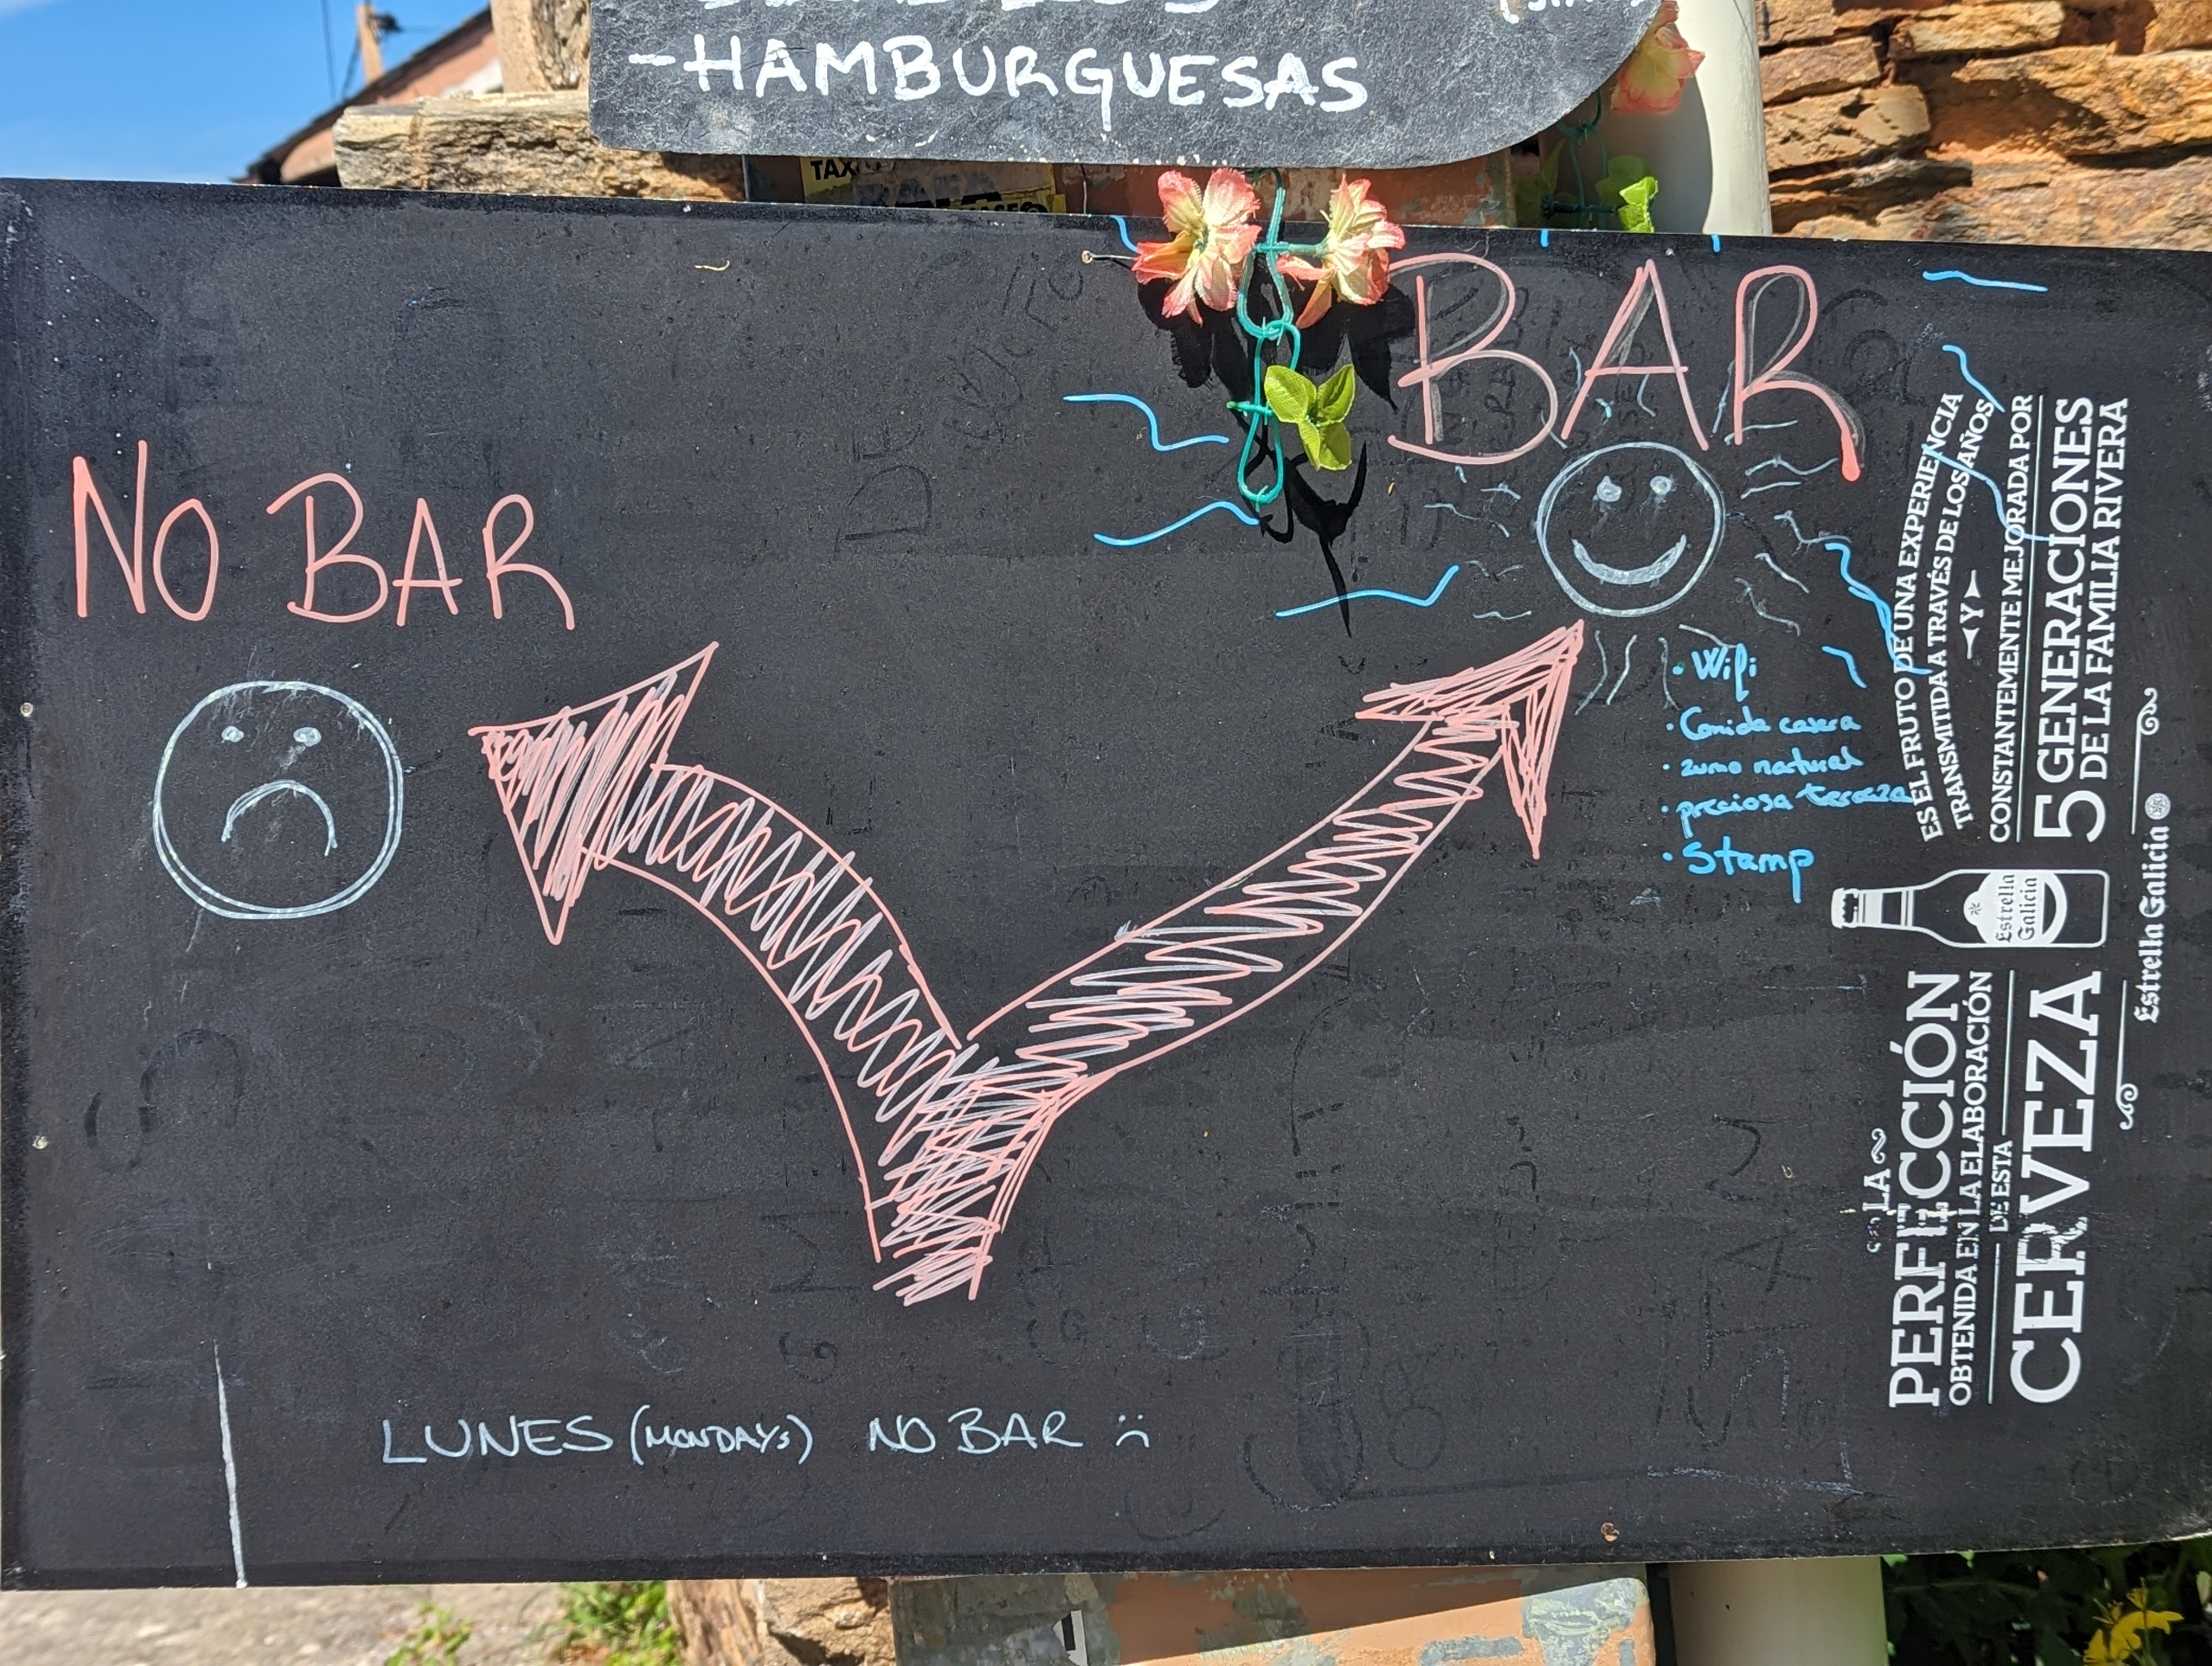 -HAMBURGUESAS
TAX
BAR
NO BAR
• Wifi
• Comida casera
• zumo natural
• preciosa terraza
• Stamp
LUNES (MONDAYS) NO BAR :(
LA
PERFECCIÓN
OBTENIDA EN LA ELABORACIÓN
DE ESTA
CERVEZA
Estrella
Galicia
ES EL FRUTO DE UNA EXPERIENCIA
TRANSMITIDA A TRAVÉS DE LOS AÑOS
Y
CONSTANTEMENTE MEJORADA POR
5 GENERACIONES
DE LA FAMILIA RIVERA
Estrella Galicia